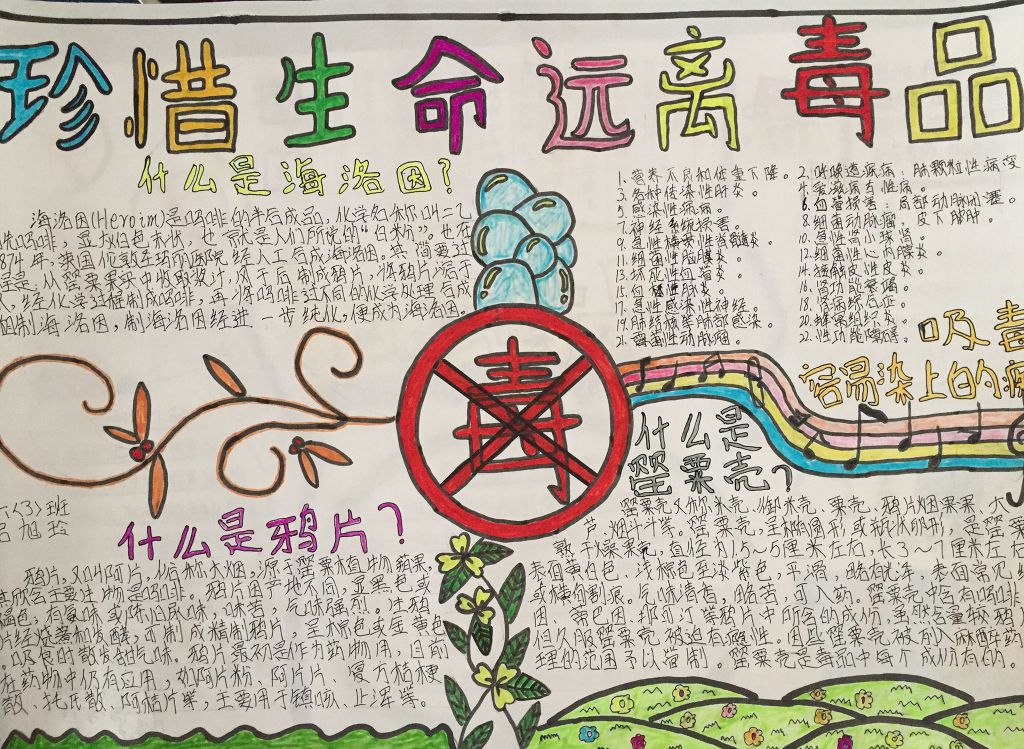 珍惜生命远离毒品
什么是海洛因?
海洛因(Heroim)是吗啡的半合成品,化学名称叫二乙
酰吗啡,显灰白色粉状,也就是人们所说的“白粉”。也在
874年,英国伦敦
经人工合成海洛因。其简要过
程是,从罂粟果实中收取浆汁,风干后制成鸦片,将鸦片溶于
经化学过程制成吗啡,再将吗啡过不同的化学处理合成
粗制海洛因,制海洛因经进一步纯化,便成为海洛因。
1.营养不良和体重下降。
2.呼吸道疾病:肺颗粒性病变
3.各种传染性肝炎。
4.爱滋病与性病。
5.感染性疾病。
6.血管损害:局部动脉闭塞。
7.神经系统损害。
8.细菌动脉瘤、皮下脓肿。
9.急性横贯性脊髓炎
10.急性肾小球肾。
11.细菌性脑膜炎
12.细菌性心内膜炎。
13.坏死性血管炎。
14.接触皮性皮炎。
15.
16.肾功能衰竭。
17.急性感染性神经。
18.肾病综合征。
19.肺经横率肺部感染。
20.蜂窝组织炎。
21.霉菌性动脉瘤。
22.性功能障碍。
吸毒
容易染上的疾
毒
什么是
罂粟壳?
罂粟壳又称米壳、御米壳、粟壳、鸦片烟果果、大
芦、烟斗斗等。罂粟壳,呈椭圆形或瓶状卵形,是罂粟
熟干燥果壳,直径为1.5~5厘米左右,长3~7厘米左右
表面黄白色、浅棕色至淡紫色,平滑,略有光泽,表面常见纵
或横向割痕。气味清香,略苦,可入药。罂粟壳中含有吗啡
因、蒂巴因、那可汀等鸦片中所含的成份,虽然含量较鸦片
但久服罂粟壳,被迫有瘾性。因些罂粟壳被列入麻醉药
理的范围予以管制。罂粟壳是毒品中每个成份有的。
六(3)班
吕旭玲
什么是鸦片?
鸦片,又叫阿片,俗称大烟,源于罂粟植物蒴果,
其所含主要生物是吗啡。鸦片因产地不同,呈黑色或
褐色;有氨味或陈旧尿味,味苦,气味强烈。生鸦
片经烧煮和发酵,可制成精制鸦片,呈棕色或金黄色
,吸食时散发甜气味。鸦片最初是作为药物用,目前
在药物中仍有应用,如阿片粉、阿片片、复方桔梗
散、托氏散、阿桔片等,主要用于镇咳、止泻等。